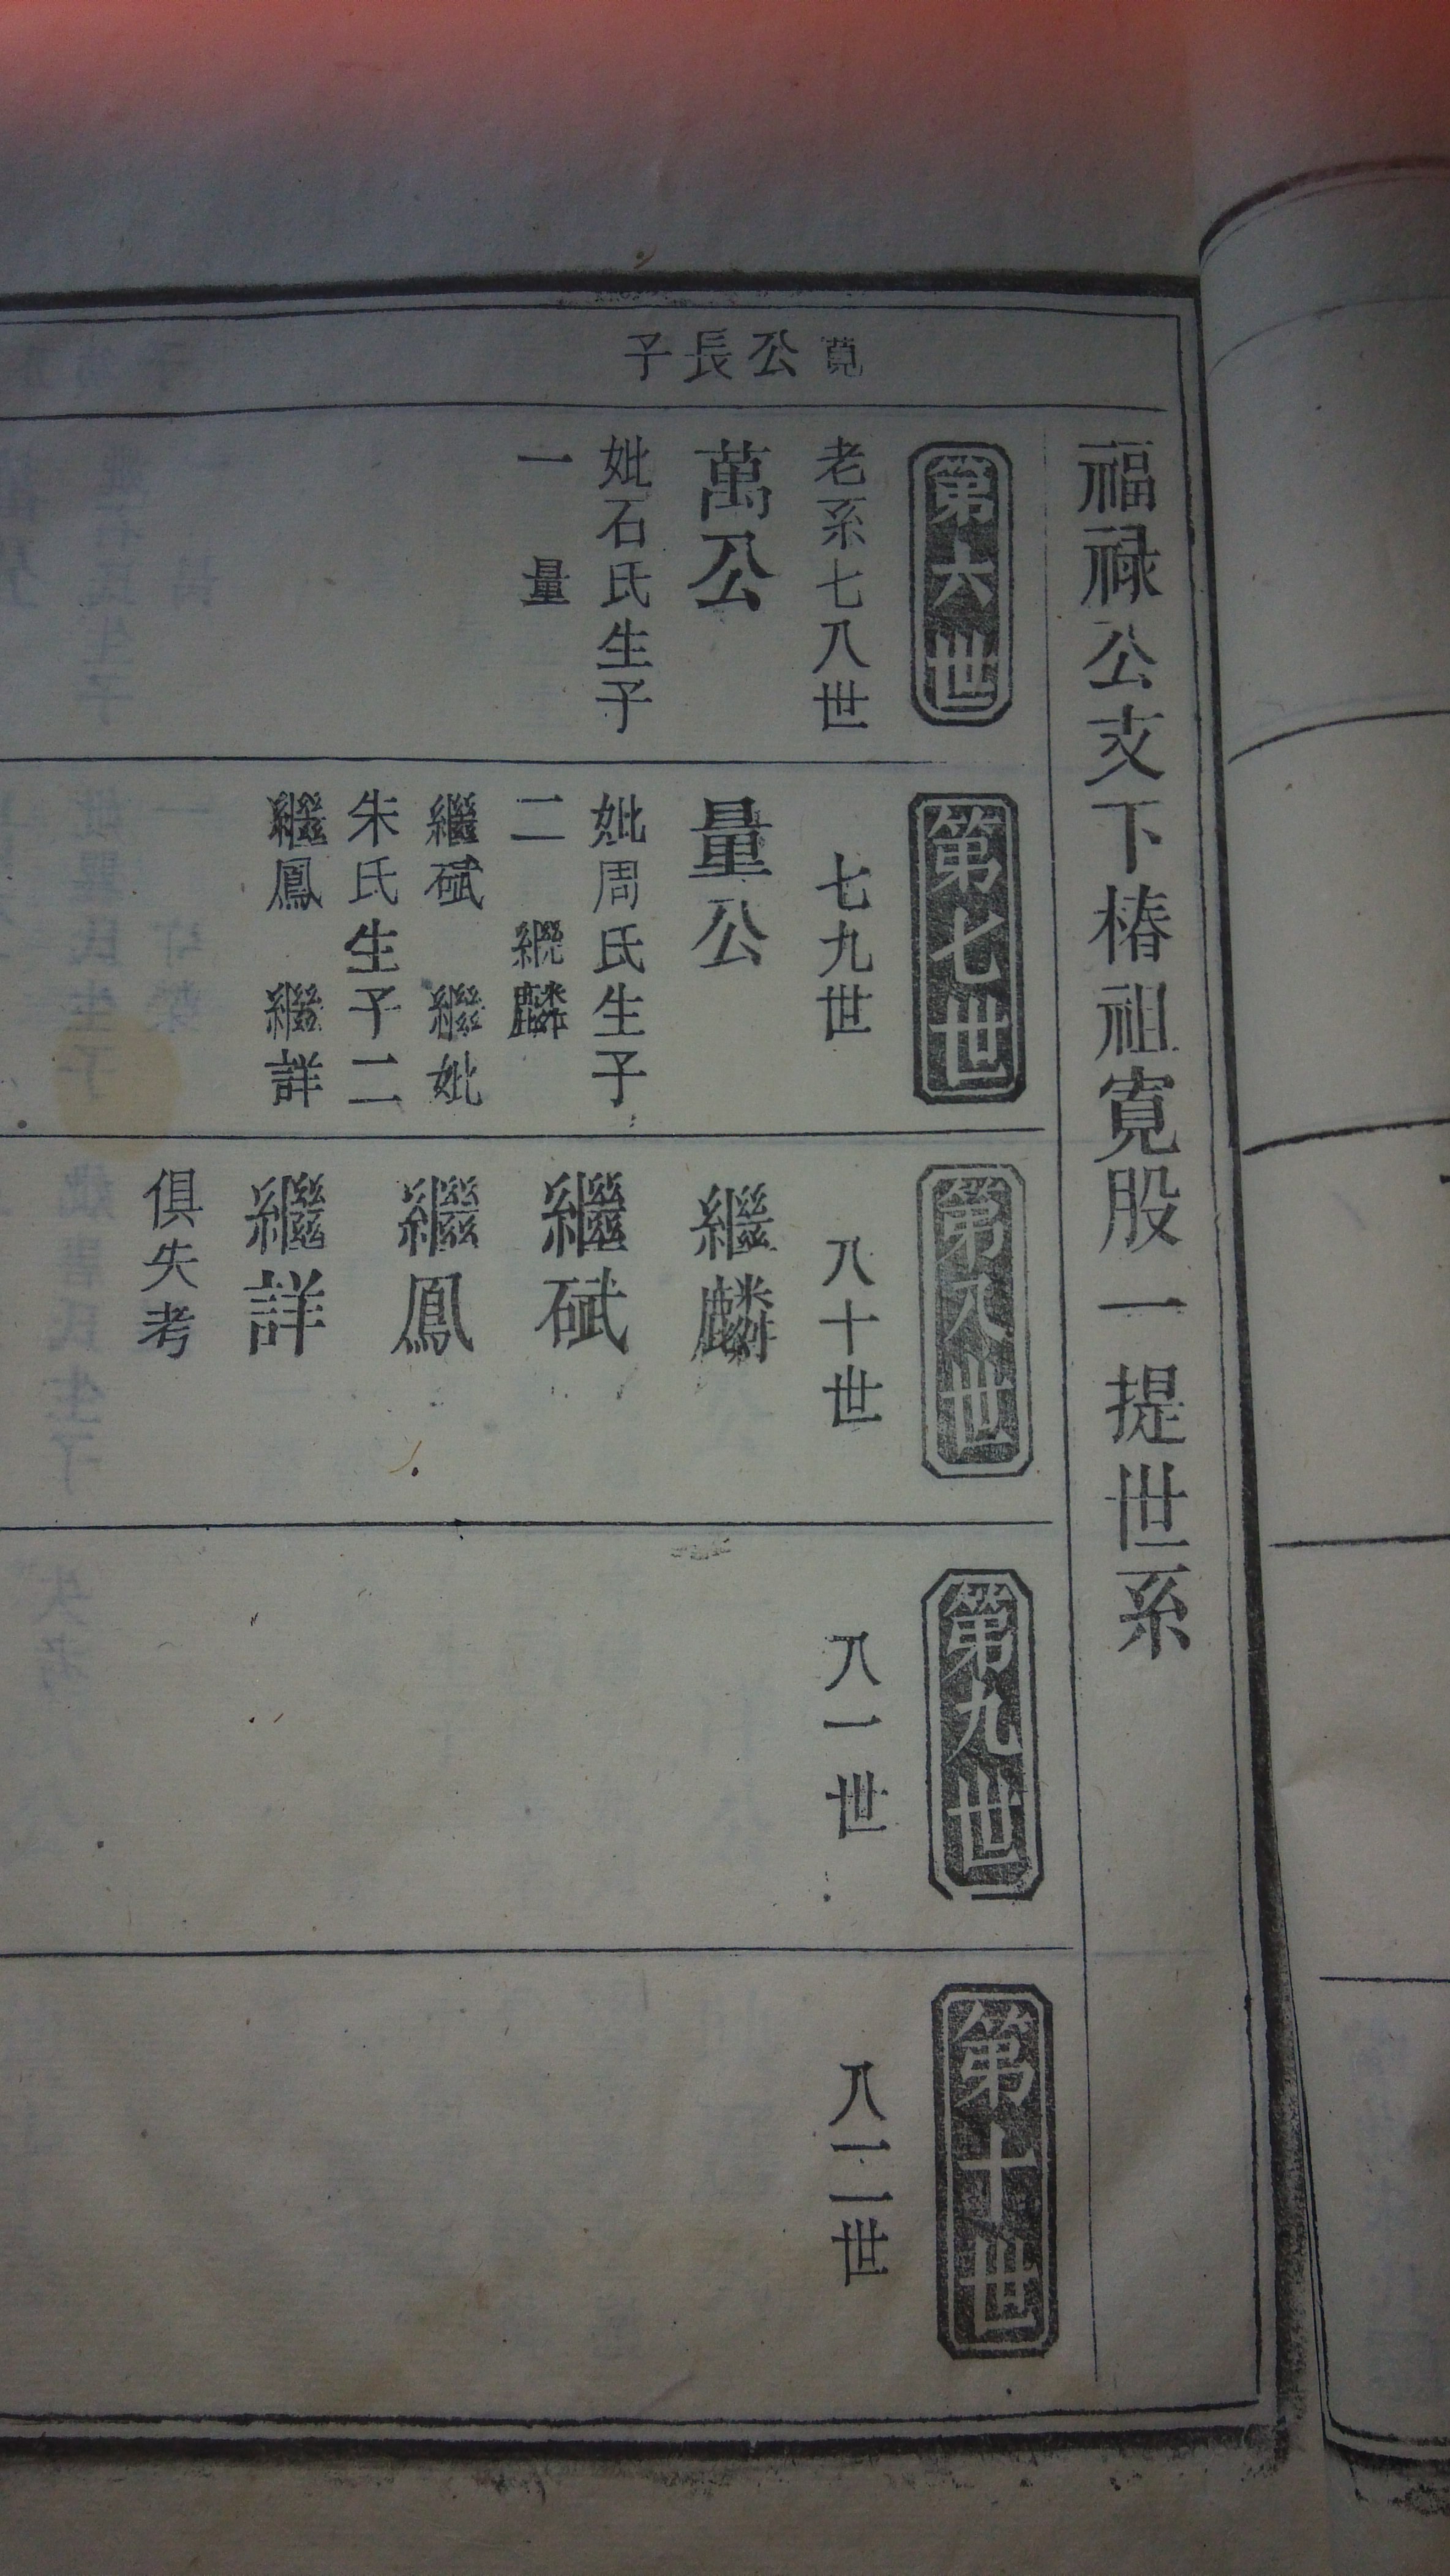 福祿公支下椿祖寬股一提世系
寬公長子
第六世
老系七八世
萬公
妣石氏生子
一 量
第七世
七九世
量公
妣周氏生子
二 繼麟
繼斌 繼妣
朱氏生子二
繼鳳 繼詳
第八世
八十世
繼麟
繼斌
繼鳳
繼詳
俱失考
第九世
八一世
第十世
八二世